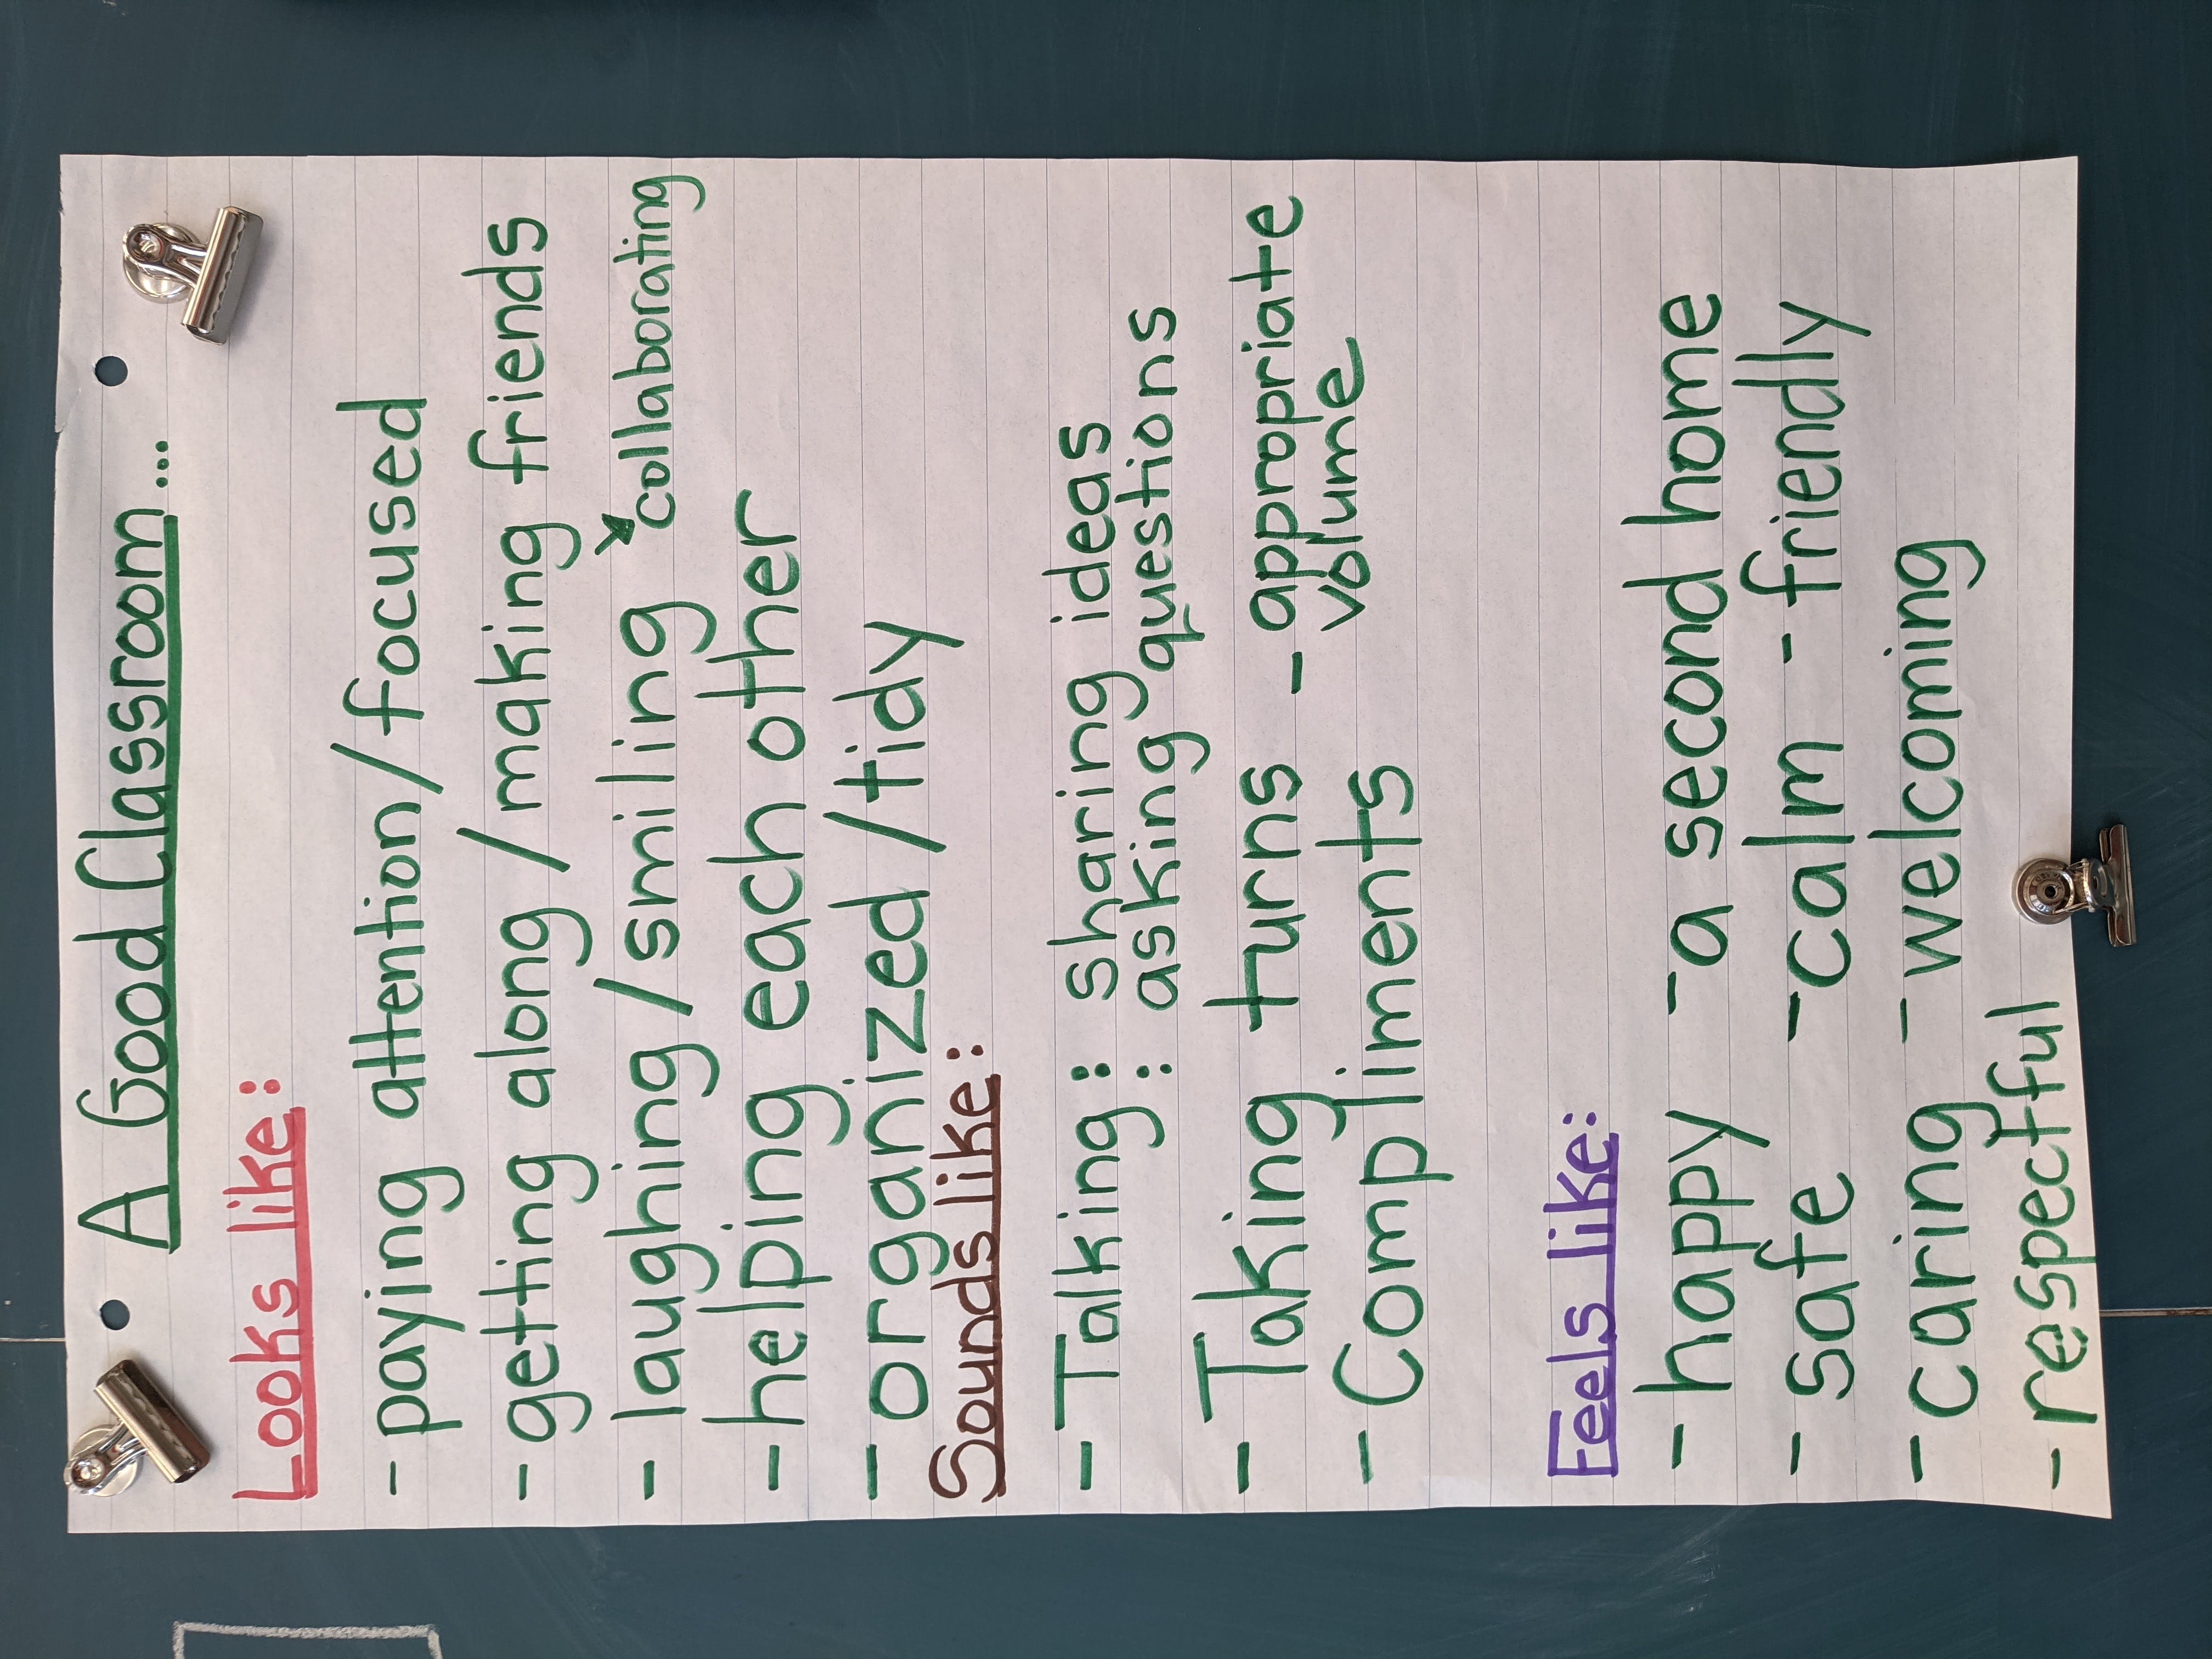 A Good Classroom...
Looks like:
- paying attention/focused
- getting along /making friends
- laughing/smiling * collaborating
- helping each other
- organized/tidy
Sounds like:
- Talking: sharing ideas
: asking questions
- Taking turns - appropriate
volume
- Compliments
Feels like:
- happy - a second home
- safe - calm - friendly
- caring - welcoming
- respectful